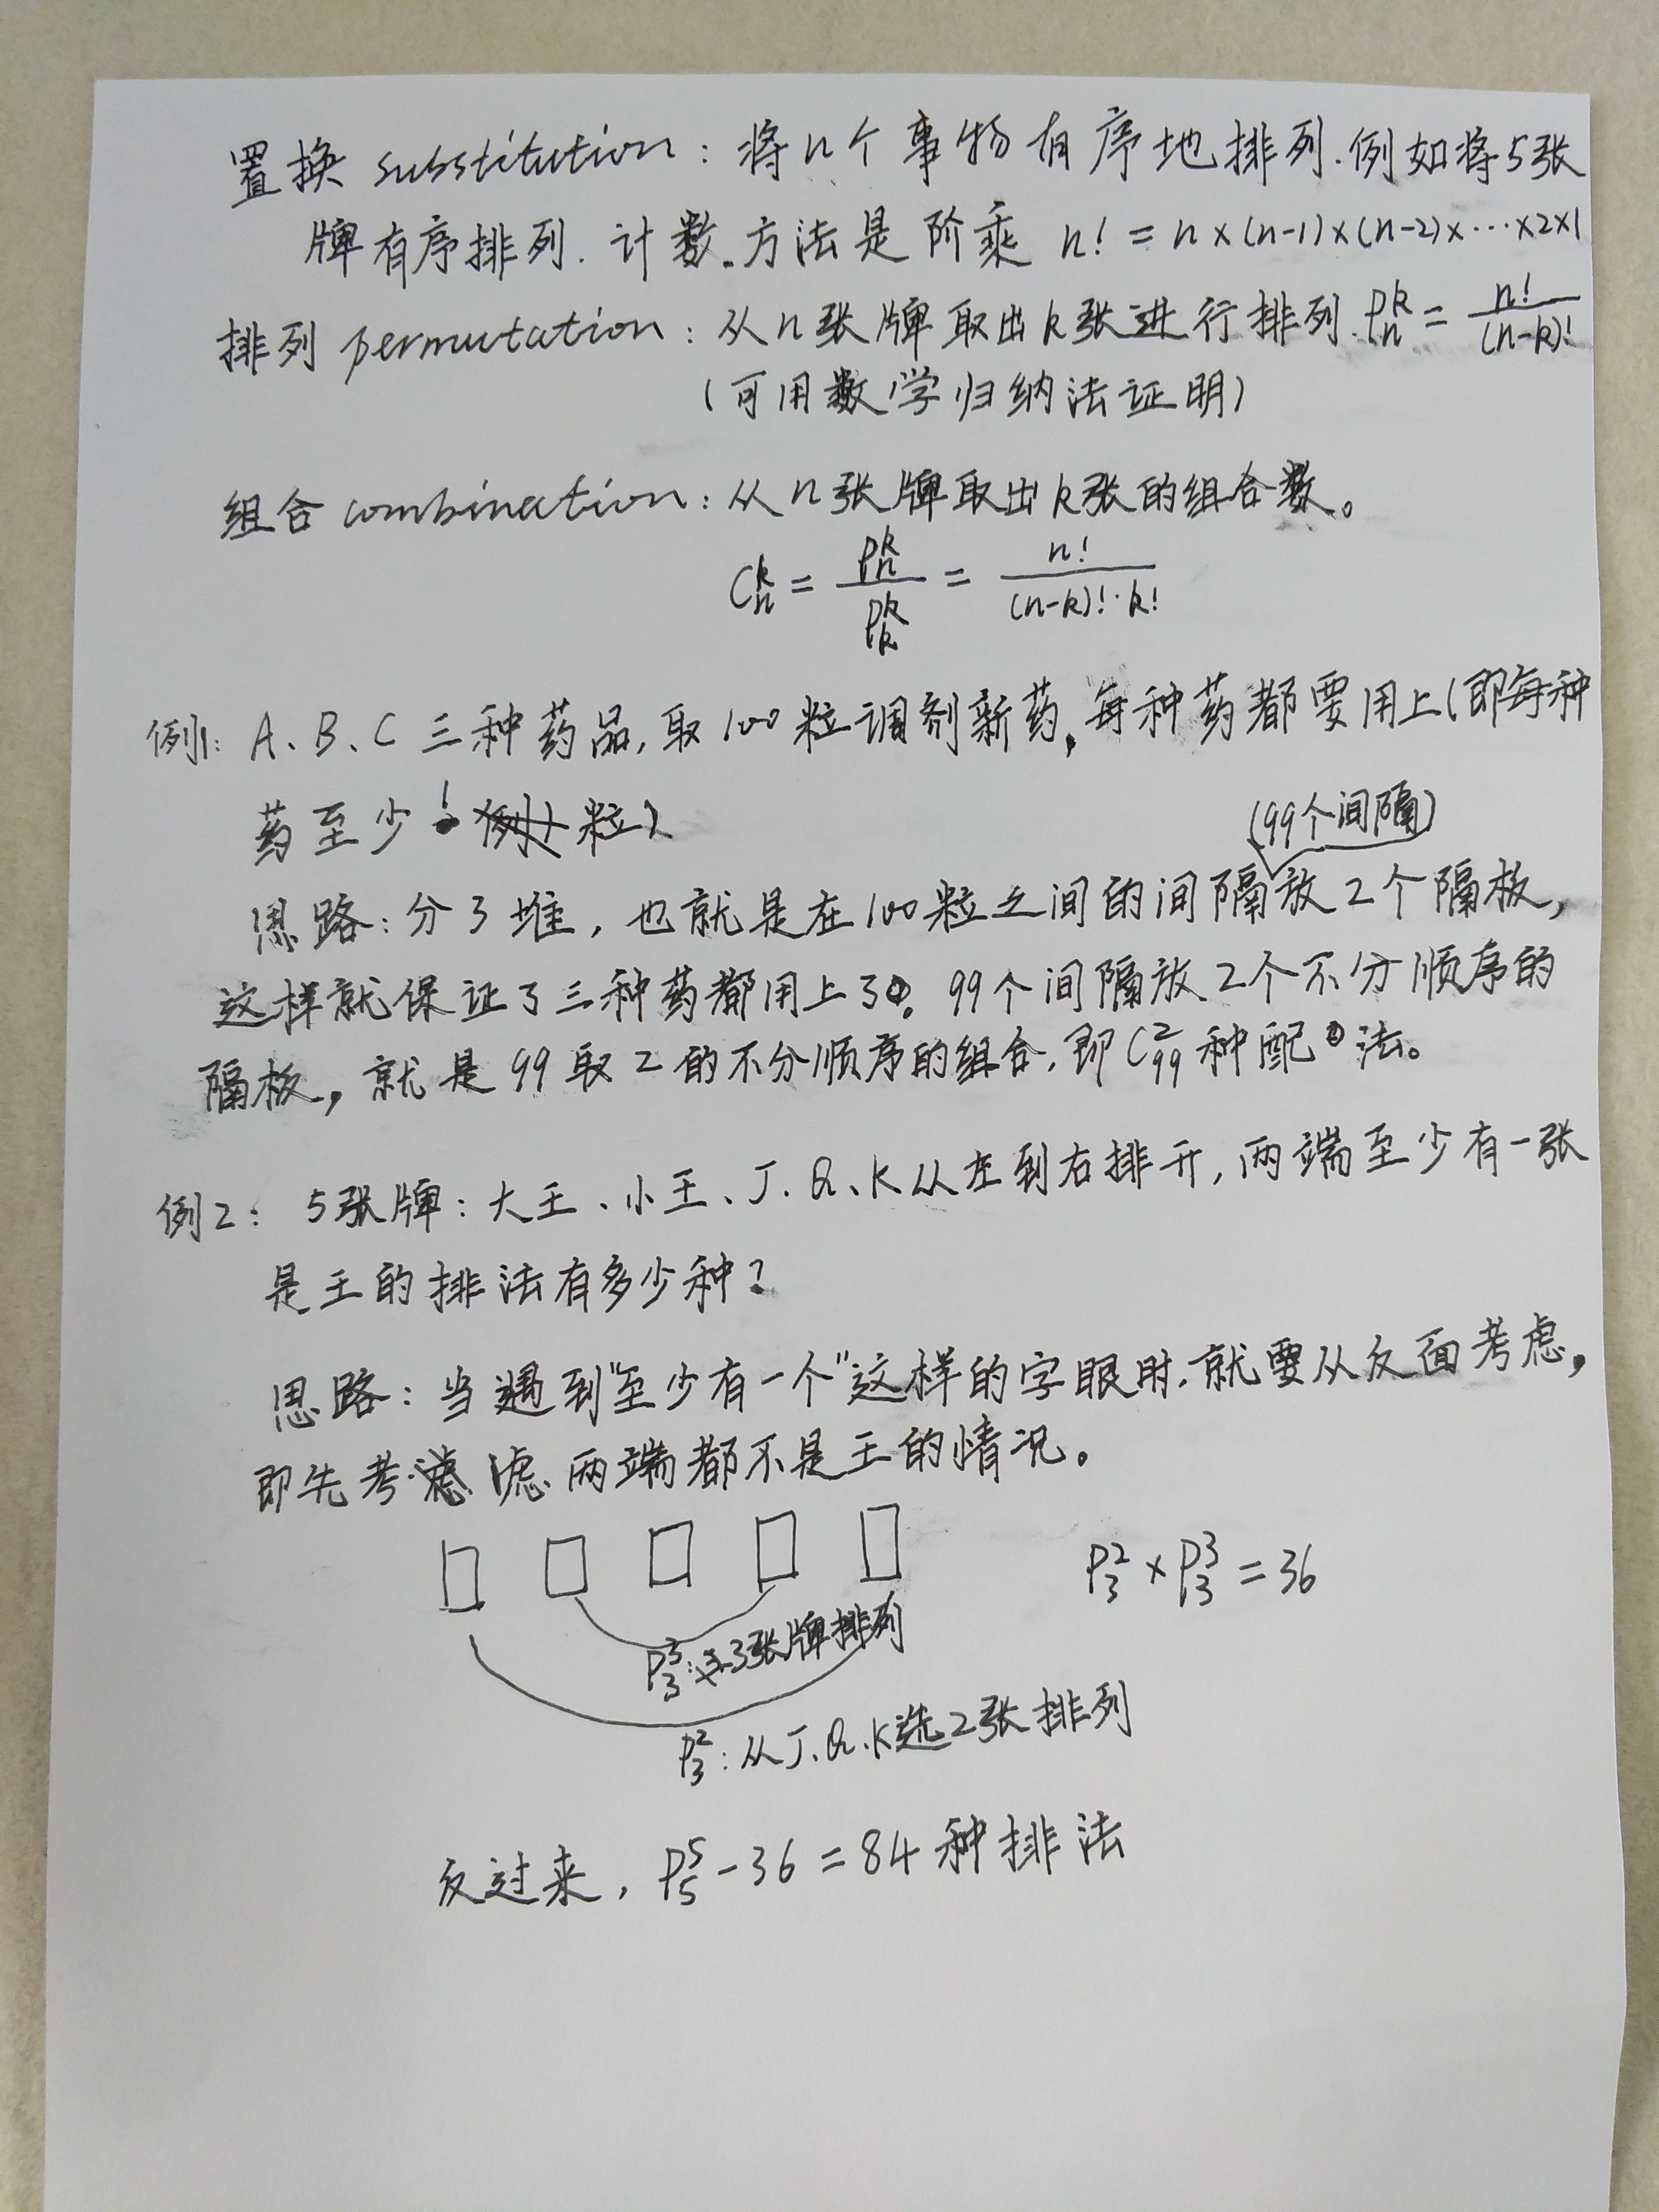 置换 substitution：将n个事物有序地排列.例如将5张
牌有序排列.计数.方法是阶乘 n! = n×(n-1)×(n-2)×…×2×1
排列 permutation：从n张牌取出k张进行排列.P_n^k = n!/(n-k)!
(可用数学归纳法证明)
组合 combination：从n张牌取出k张的组合数。
C_n^k = P_n^k/P_k^k = n!/((n-k)!·k!)
例1: A、B、C三种药品,取100粒调剂新药,每种药都要用上(即每种
药至少1粒)
(99个间隔)
思路:分3堆,也就是在100粒之间的间隔放2个隔板,
这样就保证了三种药都用上了。99个间隔放2个不分顺序的
隔板,就是99取2的不分顺序的组合,即C_99^2种配法。
例2: 5张牌:大王、小王、J、Q、K从左到右排开,两端至少有一张
是王的排法有多少种?
思路:当遇到"至少有一个"这样的字眼时,就要从反面考虑,
即先考虑两端都不是王的情况。
P_3^2 × P_3^3 = 36
P_3^3: 3张牌排列
P_3^2:从J、Q、K选2张排列
反过来, P_5^5 - 36 = 84种排法